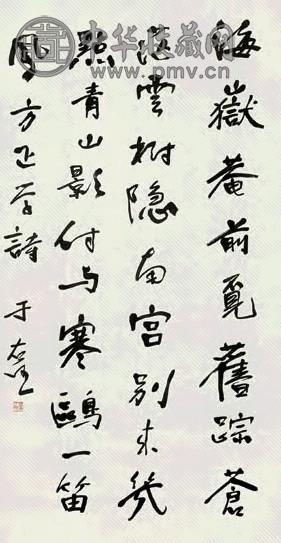 中华收藏网
www.pmv.cn
海嶽菴前覓舊踪蒼
茫雲樹隐南宫别来幾
點青山影付与寒鷗一笛
風 方正学詩 于右任